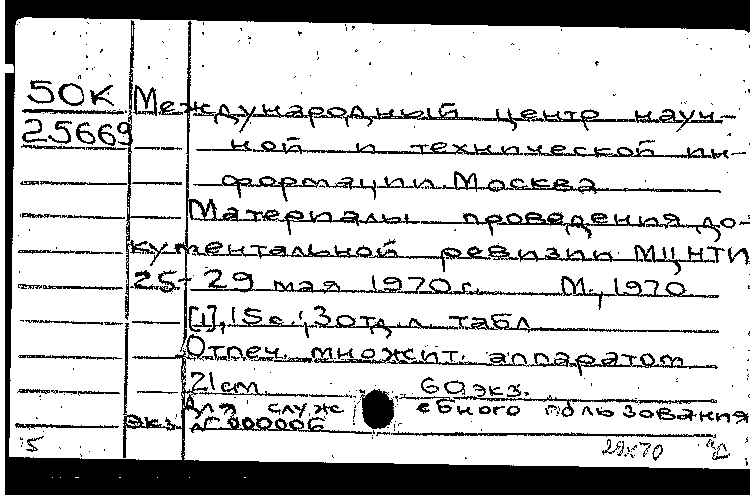 50К Международный центр науч-
25669 ной и технической ин-
формации. Москва
Материалы проведения до-
кументальной ревизии МЦНТИ
25-29 мая 1970г. М., 1970
[1], 15с.; 3 отд. л. табл
Отпеч. множит. аппаратом
21см 60экз.
Для служебного пользования
экз. № 000006
5 28х70